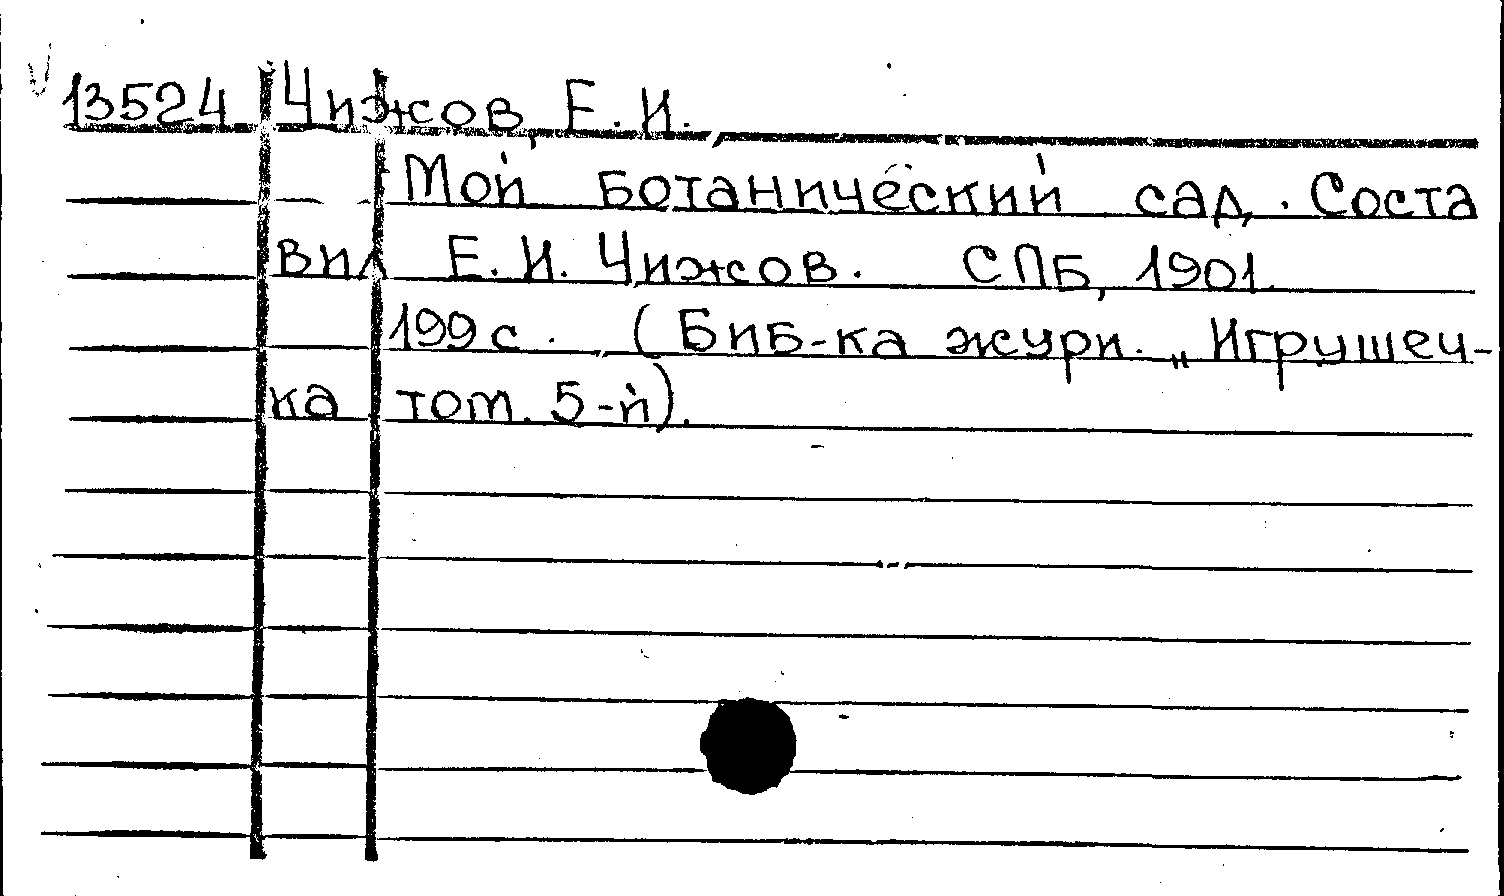 13524 Чижов, Е. И.
Мой ботанический сад. Соста
вил Е. И. Чижов. СПБ, 1901.
199 с. (Биб-ка журн. „Игрушеч-
ка том. 5-й).